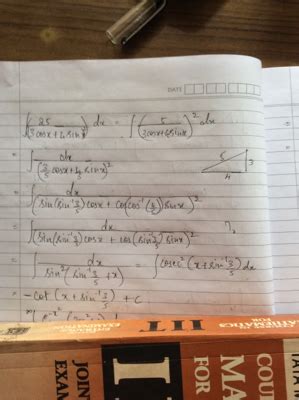 DATE
∫ 25/(3cosx+4sinx)² dx = ∫(5/(3cosx+4sinx))² dx
= ∫ dx/(3/5 cosx + 4/5 sinx)²
5 3
4
= ∫ dx/(sin(sin⁻¹3/5)cosx + cos(cos⁻¹(4/5))sinx)²
= ∫ dx/(sin(sin⁻¹3/5)cosx + cos(sin⁻¹3/5)sinx)²
= ∫ dx/sin²(sin⁻¹3/5 + x) = ∫cosec²(x+sin⁻¹3/5)dx
= -cot(x+sin⁻¹3/5)+C
MATHEMATICS
FOR
IIT
JOIN
EXAM
COU
MA
FOR